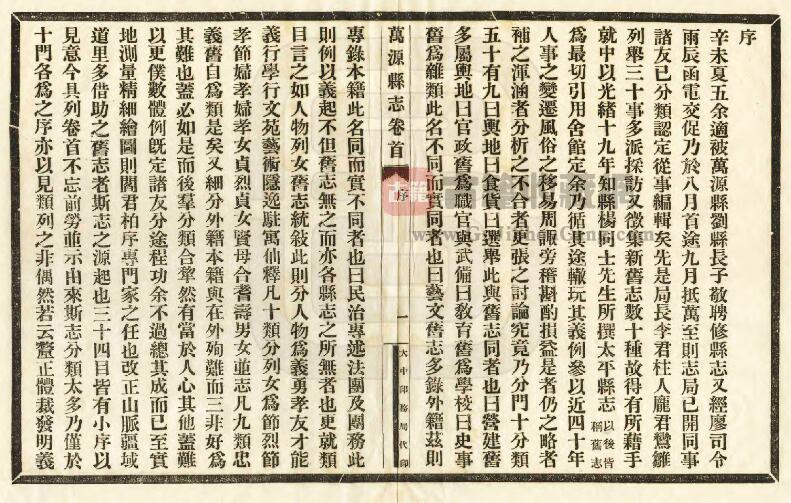 序
辛未夏五余適被萬源縣劉縣長子敬聘修縣志又經廖司令
雨辰函電交促乃於八月首途九月抵萬至則志局已開同事
諸友已分類認定從事編輯矣先是局長李君柱人龐君鸞雛
列舉三十事多派採訪又徵集新舊志數十種故得有所藉手
就中以光緒十九年知縣楊同士先生所撰太平縣志以後皆稱舊志
為最切引用舍館定余乃循其途轍玩其義例參以近四十年
人事之變遷風俗之移易周諏旁稽斟酌損益是者仍之略者
補之渾涵者分析之不合者更張之討論究竟乃分門十分類
五十有九曰輿地曰食貨曰選舉此與舊志同者也曰營建舊
多屬輿地曰官政舊為職官與武備曰教育舊為學校曰史事
舊為雜類此名不同而實同者也曰藝文舊志多錄外籍茲則
萬源縣志卷首
序
一
大中印務局代印
專錄本籍此名同而實不同者也曰民治專述法團及團務此
則例以義起不但舊志無之而亦各縣志之所無者也更就類
目言之如人物列女舊志統敍此則分人物為義勇孝友才能
義行學行文苑藝術隱逸駐寓仙釋凡十類分列女為節烈節
孝節婦孝婦孝女貞烈貞女賢母合耆壽男女並志凡九類忠
義舊自為類是矣又細分外籍本籍與在外殉難而三非好為
其難也蓋必如是而後羣分類合犂然有當於人心其他蓋難
以更僕數體例旣定諸友分途程功余不過總其成而已至實
地測量精細繪圖則閻君柏序專門家之任也改正山脈疆域
道里多借助之舊志者斯志之源起也三十四目皆有小序以
見意今具列卷首不忘前勞並示由來斯志分類太多乃僅於
十門各為之序亦以見類列之非偶然若云釐正體裁發明義
古籍
www.GujiShuCang.com